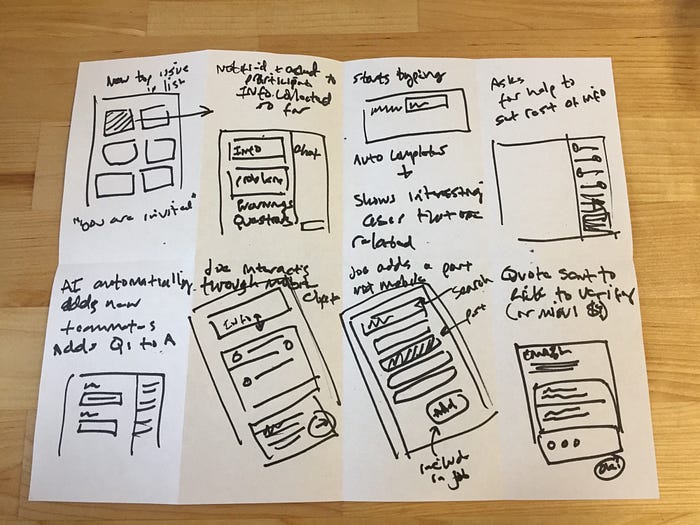 New top issue
in list
"You are invited"
Notified + asked to
participate
Info collected
so far
Info
Chat
problem
Warnings
Questions
Starts typing
Auto completes
+
Shows interesting
cases that are
related
Asks
for help to
get rest of info
AI automatically
adds new
teammates
Adds Q1 to A
Joe interacts
through mobile
Info
Joe adds a part
not mobile
search
part
Add
include
in job
Quote sent to
to verify
Email